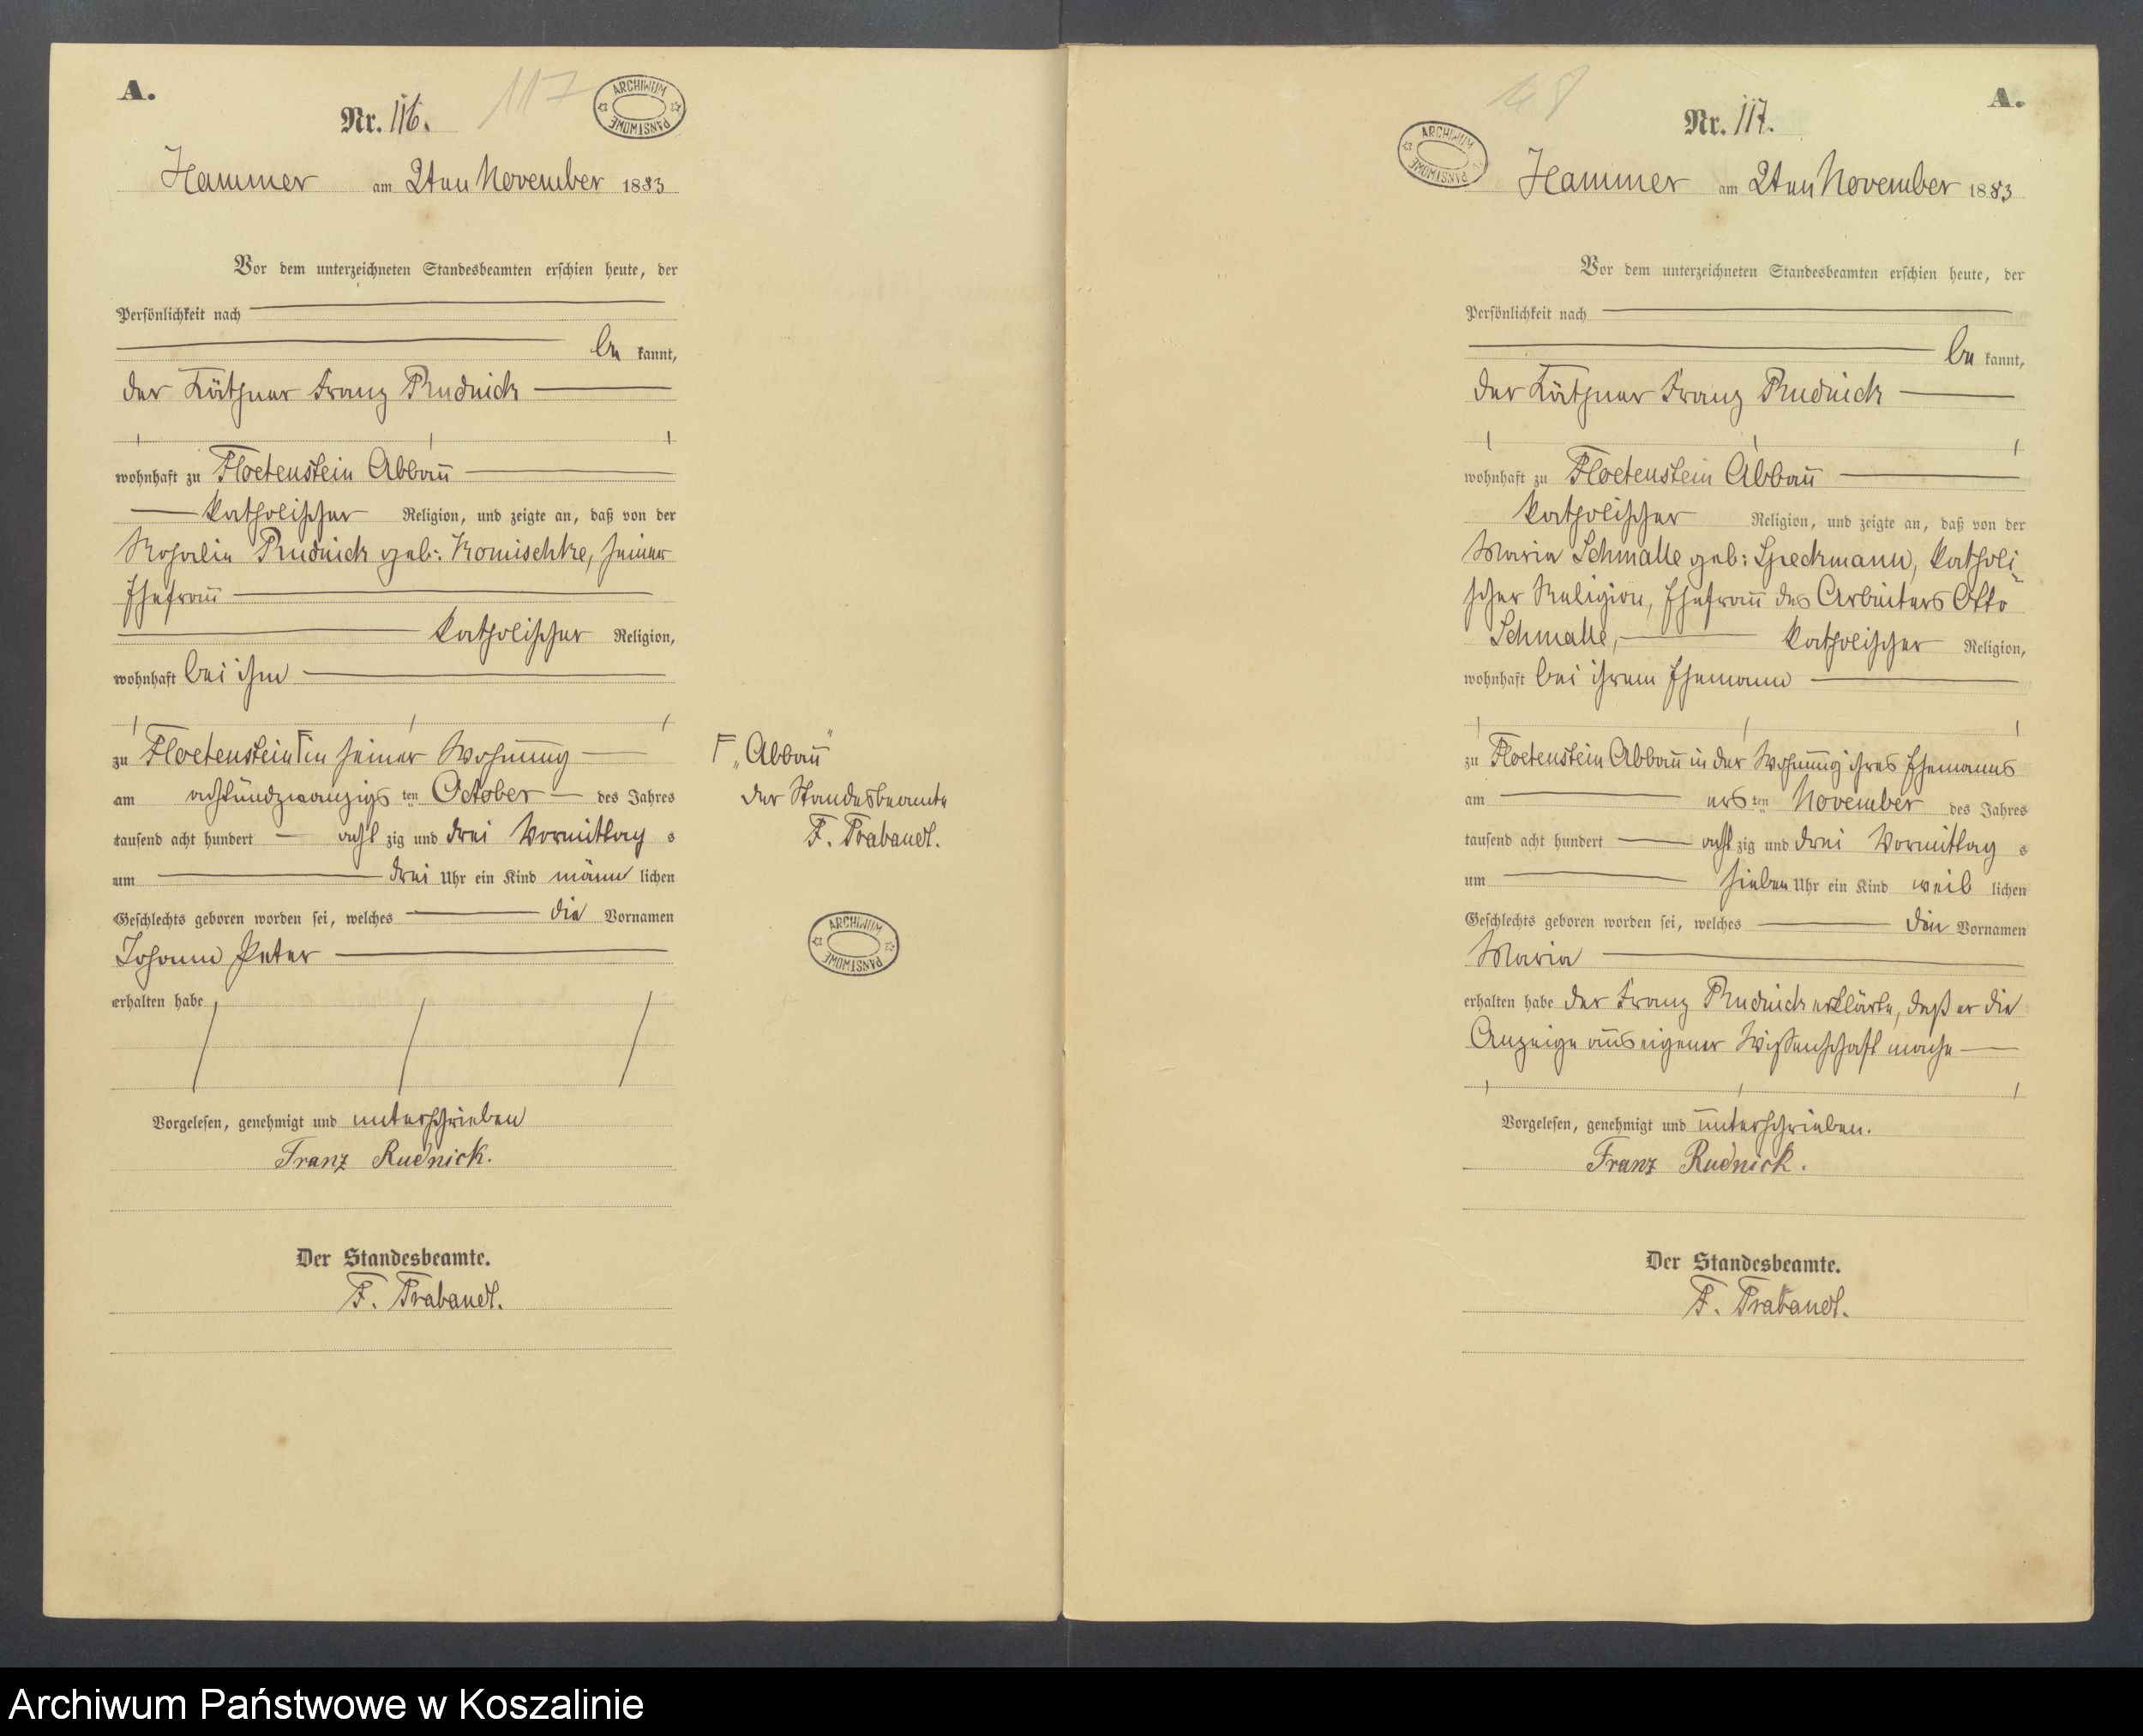 A.
Nr. 116.
117
ARCHIWUM PAŃSTWOWE
Hammer am 2ten November 1883
Vor dem unterzeichneten Standesbeamten erschien heute, der
Persönlichkeit nach
be kannt,
der Käthner Franz Rudnick
wohnhaft zu Floetenstein Abbau
katholischer Religion, und zeigte an, daß von der
Rosalie Rudnick geb: Komischke, seiner
Ehefrau
katholischer Religion,
wohnhaft bei ihm
zu Floetenstein Γ in seiner Wohnung
am achtundzwanzigs ten October des Jahres
tausend acht hundert acht zig und drei Vormittag s
um drei Uhr ein Kind männ lichen
Geschlechts geboren worden sei, welches die Vornamen
Johann Peter
erhalten habe
Vorgelesen, genehmigt und unterschrieben
Franz Rudnick.
Der Standesbeamte.
F. Trabandt.
Γ „Abbau"
der Standesbeamte
F. Trabandt.
ARCHIWUM PAŃSTWOWE
A.
Nr. 117.
ARCHIWUM PAŃSTWOWE
Hammer am 2ten November 1883
Vor dem unterzeichneten Standesbeamten erschien heute, der
Persönlichkeit nach
be kannt,
der Käthner Franz Rudnick
wohnhaft zu Floetenstein Abbau
katholischer Religion, und zeigte an, daß von der
Maria Schmalle geb: Speckmann, katholi-
scher Religion, Ehefrau des Arbeiters Otto
Schmalle, katholischer Religion,
wohnhaft bei ihrem Ehemann
zu Floetenstein Abbau in der Wohnung ihres Ehemanns
am ers ten November des Jahres
tausend acht hundert acht zig und drei Vormittag s
um sieben Uhr ein Kind weib lichen
Geschlechts geboren worden sei, welches den Vornamen
Maria
erhalten habe der Franz Rudnick erklärte, daß er die
Anzeige aus eigener Wissenschaft mache
Vorgelesen, genehmigt und unterschrieben.
Franz Rudnick.
Der Standesbeamte.
F. Trabandt.
Archiwum Państwowe w Koszalinie